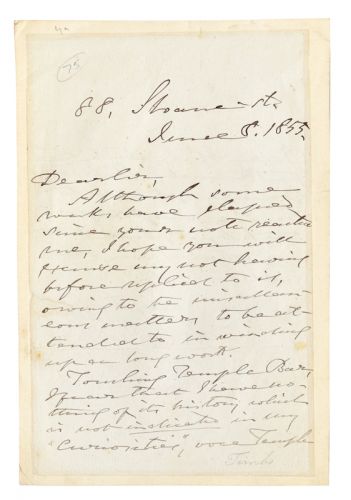 75
88, Sloane-st.
June 8. 1855.
Dear Sir,
Although some
weeks have elapsed
since your note reached
me, I hope you will
excuse my not having
before replied to it,
owing to the miscellan-
eous matters to be at-
tended to in winding
up a long work.
Touching Temple Bar,
I fear that I have no-
thing of its history which
is not indicated in my
"Curiosities", voce Temple
Timbs